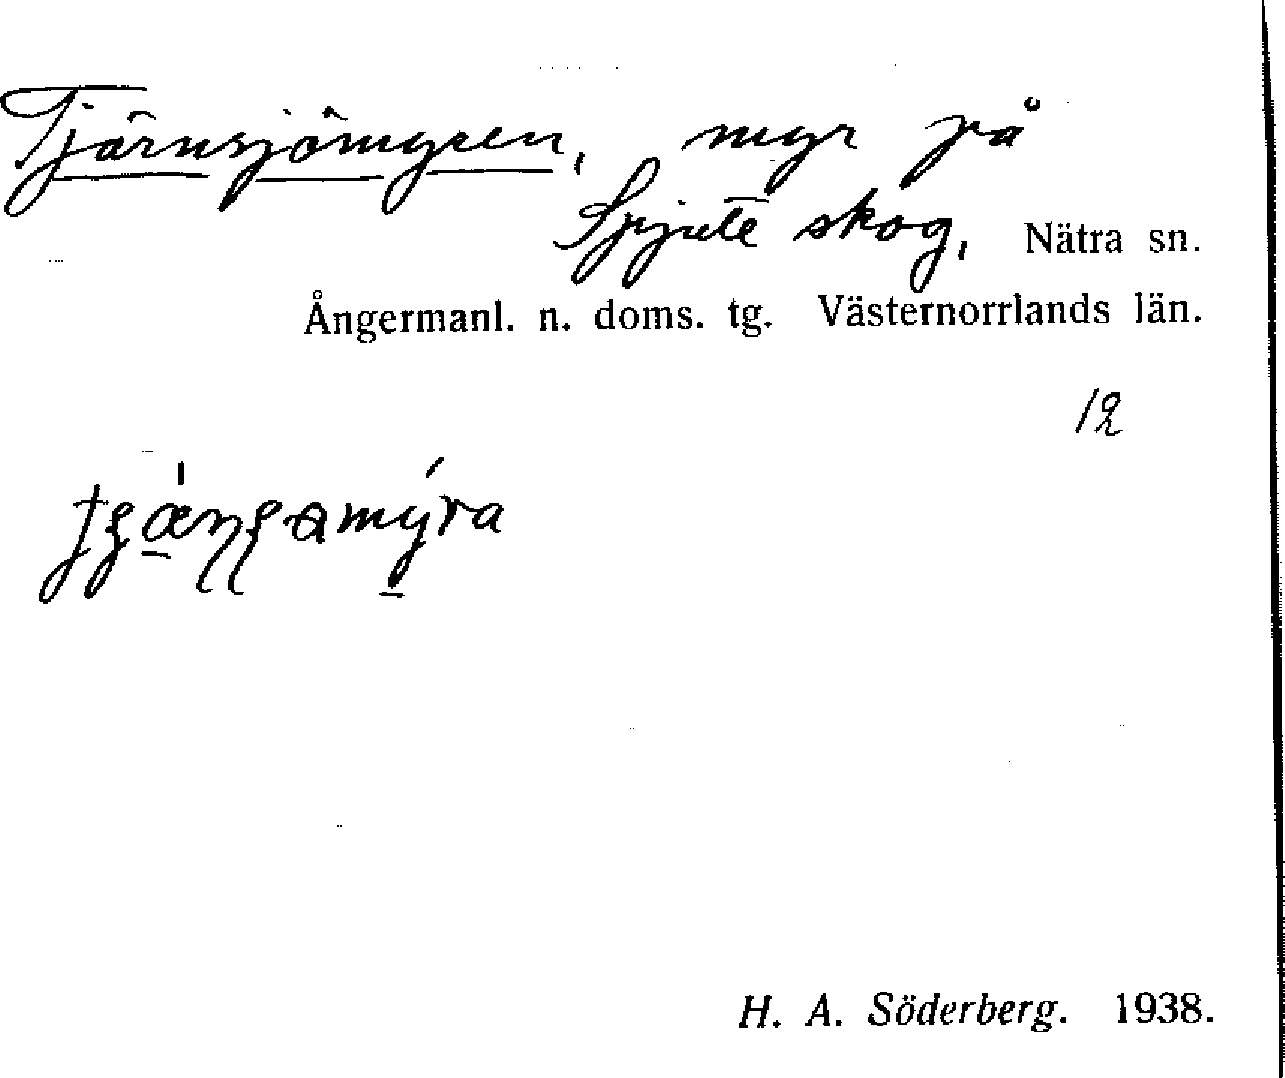 Tjärnsjömyren, myr på
Spjute skog, Nätra sn.
Ångermanl. n. doms. tg. Västernorrlands län.
12
H. A. Söderberg. 1938.